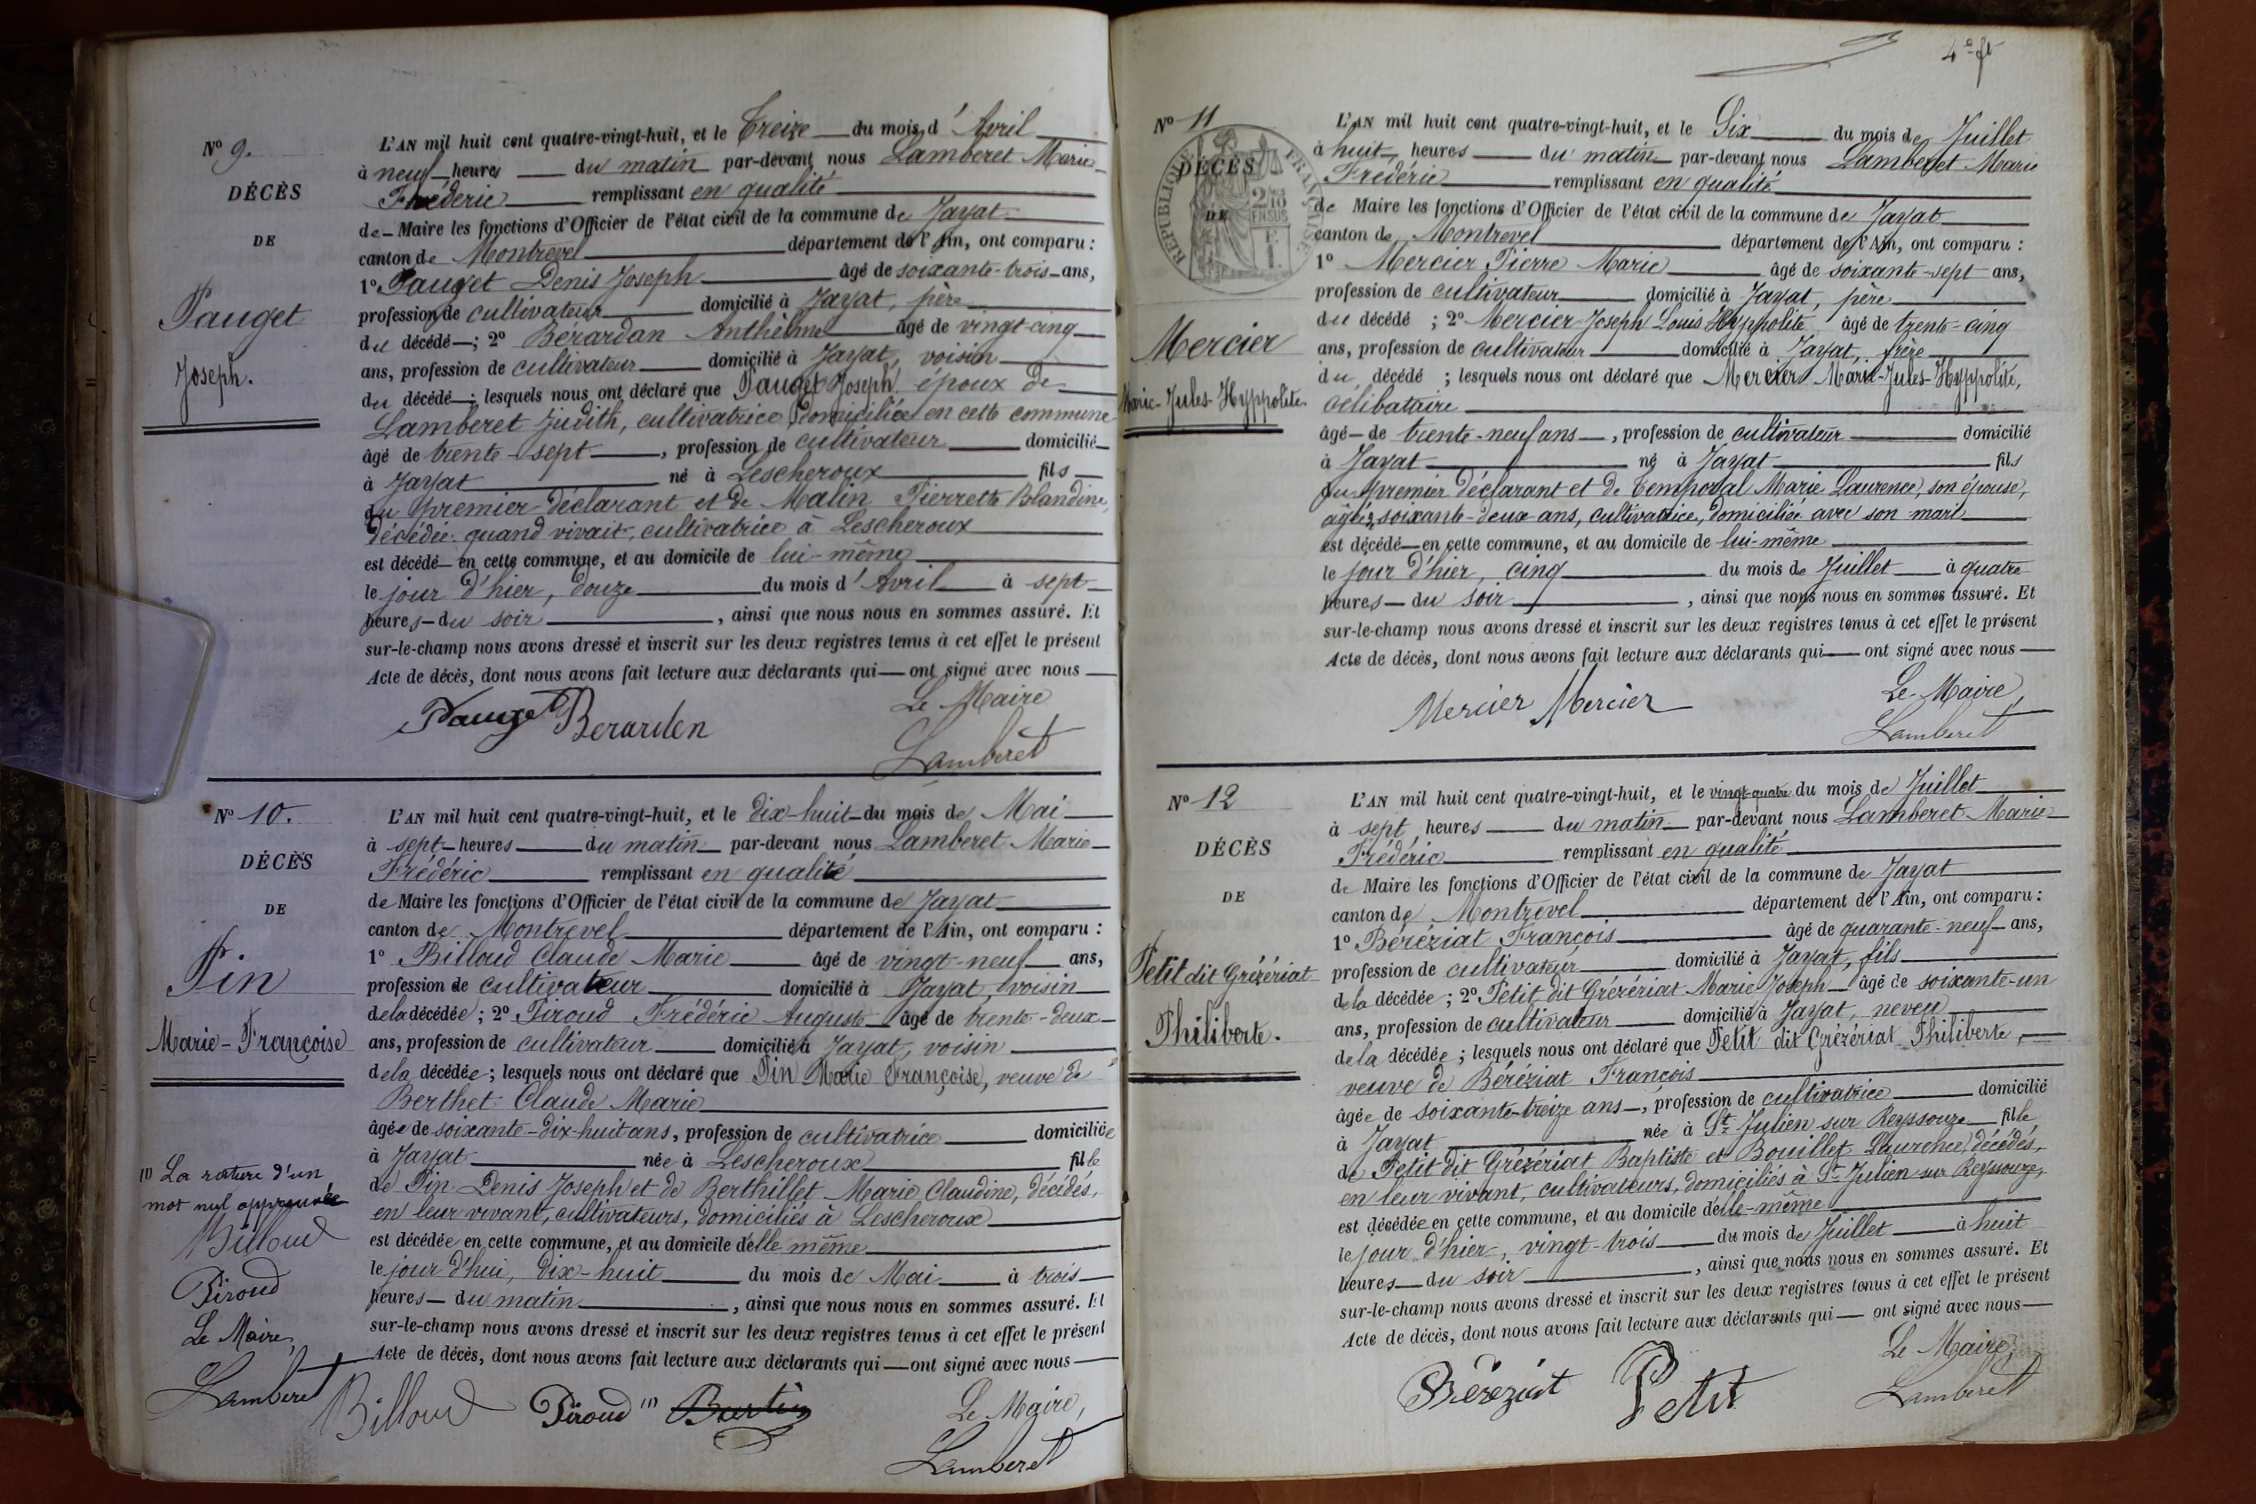 N° 9.
DÉCÈS
DE
Pauget
Joseph.
L'AN mil huit cent quatre-vingt-huit, et le Treize du mois d'Avril
à neuf heures du matin par-devant nous Lamberet Marie
Frédéric remplissant en qualité
de Maire les fonctions d'Officier de l'état civil de la commune de Jayat
canton de Montrevel département de l'Ain, ont comparu :
1° Pauget Denis Joseph âgé de soixante-trois ans,
profession de cultivateur domicilié à Jayat, père
du décédé ; 2° Bérardan Anthelme âgé de vingt-cinq
ans, profession de cultivateur domicilié à Jayat, voisin
du décédé ; lesquels nous ont déclaré que Pauget Joseph, époux de
Lamberet Judith, cultivatrice domiciliée en cette commune
âgé de trente-sept , profession de cultivateur domicilié
à Jayat né à Lescheroux fils
du premier déclarant et de Malin Pierrette Blandine,
décédée quand vivait, cultivatrice à Lescheroux
est décédé en cette commune, et au domicile de lui-même
le jour d'hier, douze du mois d'Avril à sept
heures du soir , ainsi que nous nous en sommes assuré. Et
sur-le-champ nous avons dressé et inscrit sur les deux registres tenus à cet effet le présent
Acte de décès, dont nous avons fait lecture aux déclarants qui ont signé avec nous
Le Maire
Pauget Berarden
Lamberet
N° 10.
DÉCÈS
DE
Pin
Marie-Françoise
(1) La rature d'un
mot nul approuvée
Billoud
Piroud
Le Maire,
Lamberet
L'AN mil huit cent quatre-vingt-huit, et le dix-huit du mois de Mai
à sept heures du matin par-devant nous Lamberet Marie
Frédéric remplissant en qualité
de Maire les fonctions d'Officier de l'état civil de la commune de Jayat
canton de Montrevel département de l'Ain, ont comparu :
1° Billoud Claude Marie âgé de vingt-neuf ans,
profession de cultivateur domicilié à Jayat, voisin
de la décédée ; 2° Piroud Frédéric Auguste âgé de trente-deux
ans, profession de cultivateur domicilié à Jayat, voisin
de la décédée ; lesquels nous ont déclaré que Pin Marie Françoise, veuve de
Berthet Claude Marie
âgée de soixante-dix-huit ans, profession de cultivatrice domiciliée
à Jayat née à Lescheroux fille
de Pin Denis Joseph et de Berthillet Marie Claudine, décédés,
en leur vivant, cultivateurs, domiciliés à Lescheroux
est décédée en cette commune, et au domicile d'elle même
le jour d'hui, dix-huit du mois de Mai à trois
heures du matin , ainsi que nous nous en sommes assuré. Et
sur-le-champ nous avons dressé et inscrit sur les deux registres tenus à cet effet le présent
Acte de décès, dont nous avons fait lecture aux déclarants qui ont signé avec nous
Le Maire,
Billoud Piroud (1)
Lamberet
N° 11
DÉCÈS
DE
RÉPUBLIQUE FRANÇAISE
Mercier
Marie-Jules-Hyppolite.
L'AN mil huit cent quatre-vingt-huit, et le Six du mois de Juillet
à huit heures du matin par-devant nous Lamberet Marie
Frédéric remplissant en qualité
de Maire les fonctions d'Officier de l'état civil de la commune de Jayat
canton de Montrevel département de l'Ain, ont comparu :
1° Mercier Pierre Marie âgé de soixante-sept ans,
profession de cultivateur domicilié à Jayat, père
du décédé ; 2° Mercier Joseph Louis Hyppolite âgé de trente-cinq
ans, profession de cultivateur domicilié à Jayat, frère
du décédé ; lesquels nous ont déclaré que Mercier Marie-Jules-Hyppolite,
célibataire
âgé de trente-neuf ans , profession de cultivateur domicilié
à Jayat né à Jayat fils
du premier déclarant et de Temporal Marie Laurence, son épouse,
âgée soixante-deux ans, cultivatrice, domiciliée avec son mari
est décédé en cette commune, et au domicile de lui-même
le jour d'hier, cinq du mois de Juillet à quatre
heures du soir , ainsi que nous nous en sommes assuré. Et
sur-le-champ nous avons dressé et inscrit sur les deux registres tenus à cet effet le présent
Acte de décès, dont nous avons fait lecture aux déclarants qui ont signé avec nous
Le Maire,
Mercier Mercier
Lamberet
N° 12
DÉCÈS
DE
Petit dit Grézériat
Philiberte.
L'AN mil huit cent quatre-vingt-huit, et le vingt-quatre du mois de Juillet
à sept heures du matin par-devant nous Lamberet Marie
Frédéric remplissant en qualité
de Maire les fonctions d'Officier de l'état civil de la commune de Jayat
canton de Montrevel département de l'Ain, ont comparu :
1° Béréziat François âgé de quarante-neuf ans,
profession de cultivateur domicilié à Jayat, fils
de la décédée ; 2° Petit dit Grézériat Marie Joseph âgé de soixante-un
ans, profession de cultivateur domicilié à Jayat, neveu
de la décédée ; lesquels nous ont déclaré que Petit dit Grézériat Philiberte,
veuve de Béréziat François
âgée de soixante-treize ans , profession de cultivatrice domicilié
à Jayat née à St Julien sur Reyssouze fille
de Petit dit Grézériat Baptiste et Bouillet Laurence, décédés,
en leur vivant, cultivateurs, domiciliés à St Julien sur Reyssouze,
est décédée en cette commune, et au domicile d'elle-même
le jour d'hier, vingt-trois du mois de Juillet à huit
heures du soir , ainsi que nous nous en sommes assuré. Et
sur-le-champ nous avons dressé et inscrit sur les deux registres tenus à cet effet le présent
Acte de décès, dont nous avons fait lecture aux déclarants qui ont signé avec nous
Le Maire,
Béréziat Petit
Lamberet